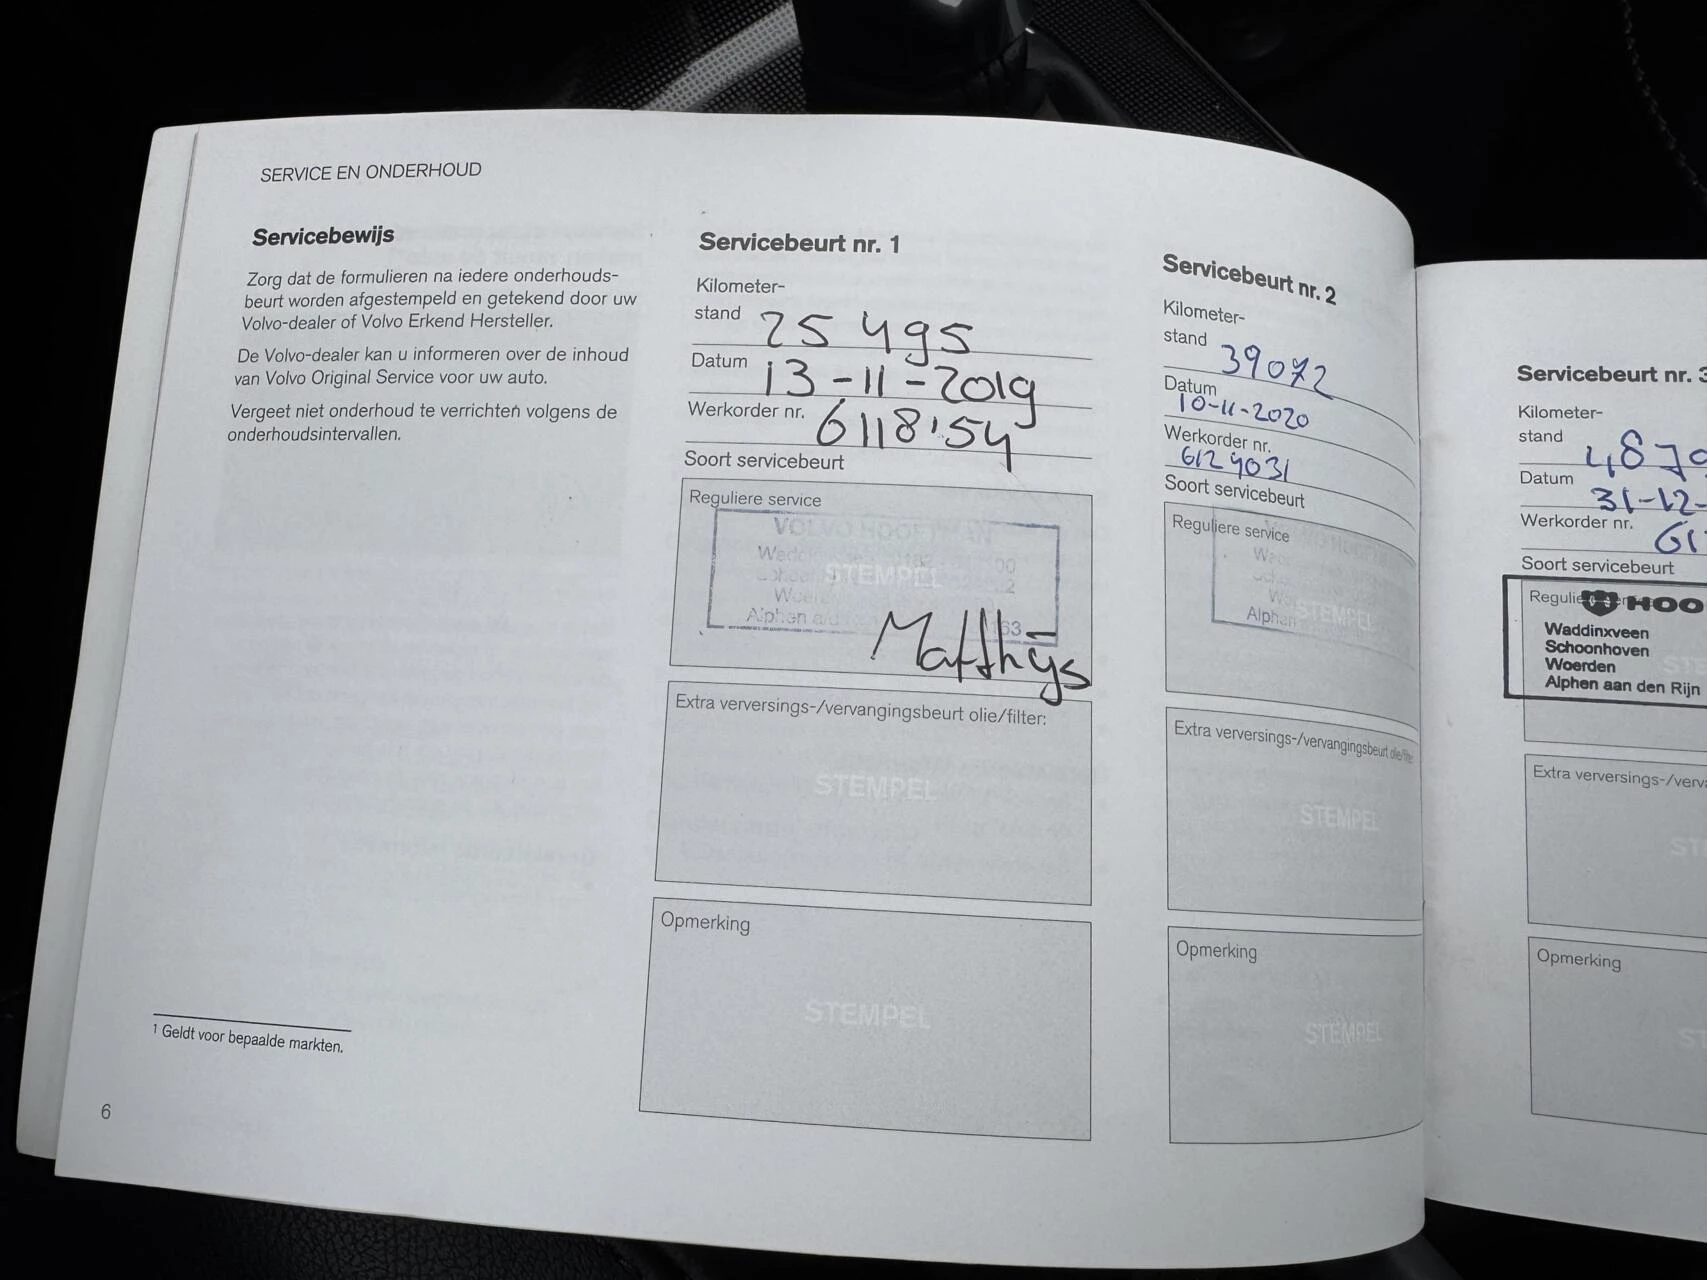 SERVICE EN ONDERHOUD
Servicebewijs
Zorg dat de formulieren na iedere onderhouds-
beurt worden afgestempeld en getekend door uw
Volvo-dealer of Volvo Erkend Hersteller.
De Volvo-dealer kan u informeren over de inhoud
van Volvo Original Service voor uw auto.
Vergeet niet onderhoud te verrichten volgens de
onderhoudsintervallen.
1 Geldt voor bepaalde markten.
6
Servicebeurt nr. 1
Kilometer-
stand 25 495
Datum 13-11-2019
Werkorder nr. 6118154
Soort servicebeurt
Reguliere service
VOLVO
STEMPEL
Alphen
Matthijs
Extra verversings-/vervangingsbeurt olie/filter:
STEMPEL
Opmerking
STEMPEL
Servicebeurt nr. 2
Kilometer-
stand 39072
Datum
10-11-2020
Werkorder nr.
6124031
Soort servicebeurt
Reguliere service
STEMPEL
Alphen
Extra verversings-/vervangingsbeurt olie/filte
STEMPEL
Opmerking
STEMPEL
Servicebeurt nr. 3
Kilometer-
stand
Datum 31-12-
Werkorder nr. 61
Soort servicebeurt
HOO
Waddinxveen
Schoonhoven
Woerden
Alphen aan den Rijn
Extra verversings-/verva
Opmerking